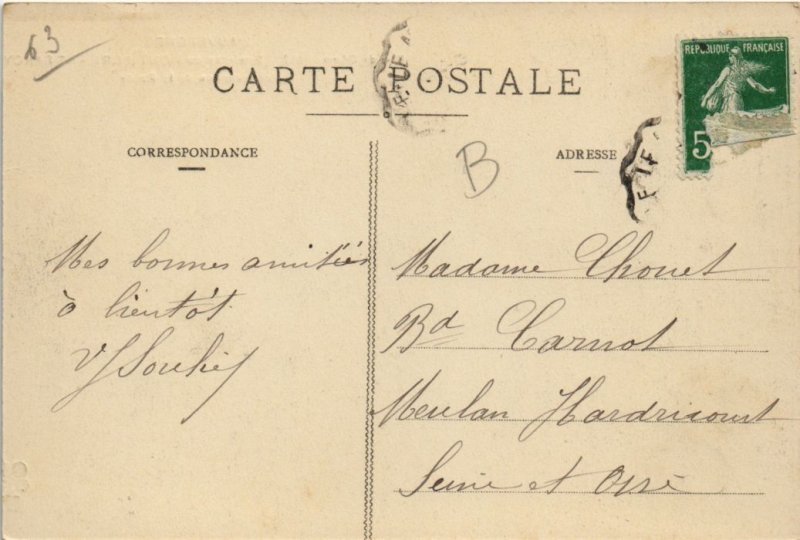 63
CARTE POSTALE
RÉPUBLIQUE FRANÇAISE
5
CORRESPONDANCE
B
ADRESSE
Mes bonnes amitiés
à bientôt
Madame Chouet
Bd Carnot
Meulan Hardricourt
Seine et Oise